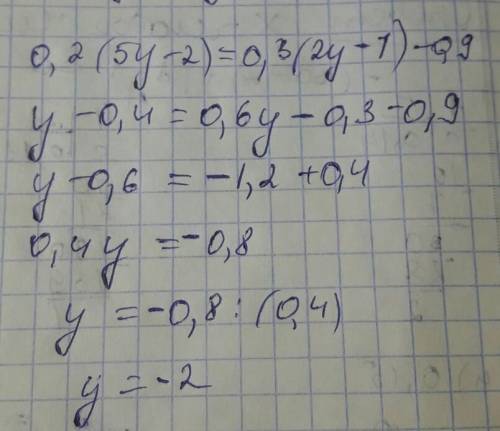 0,2(5y-2)=0,3(2y-1)-0,9
y-0,4=0,6y-0,3-0,9
y-0,6=-1,2+0,4
0,4y=-0,8
y=-0,8:(0,4)
y=-2